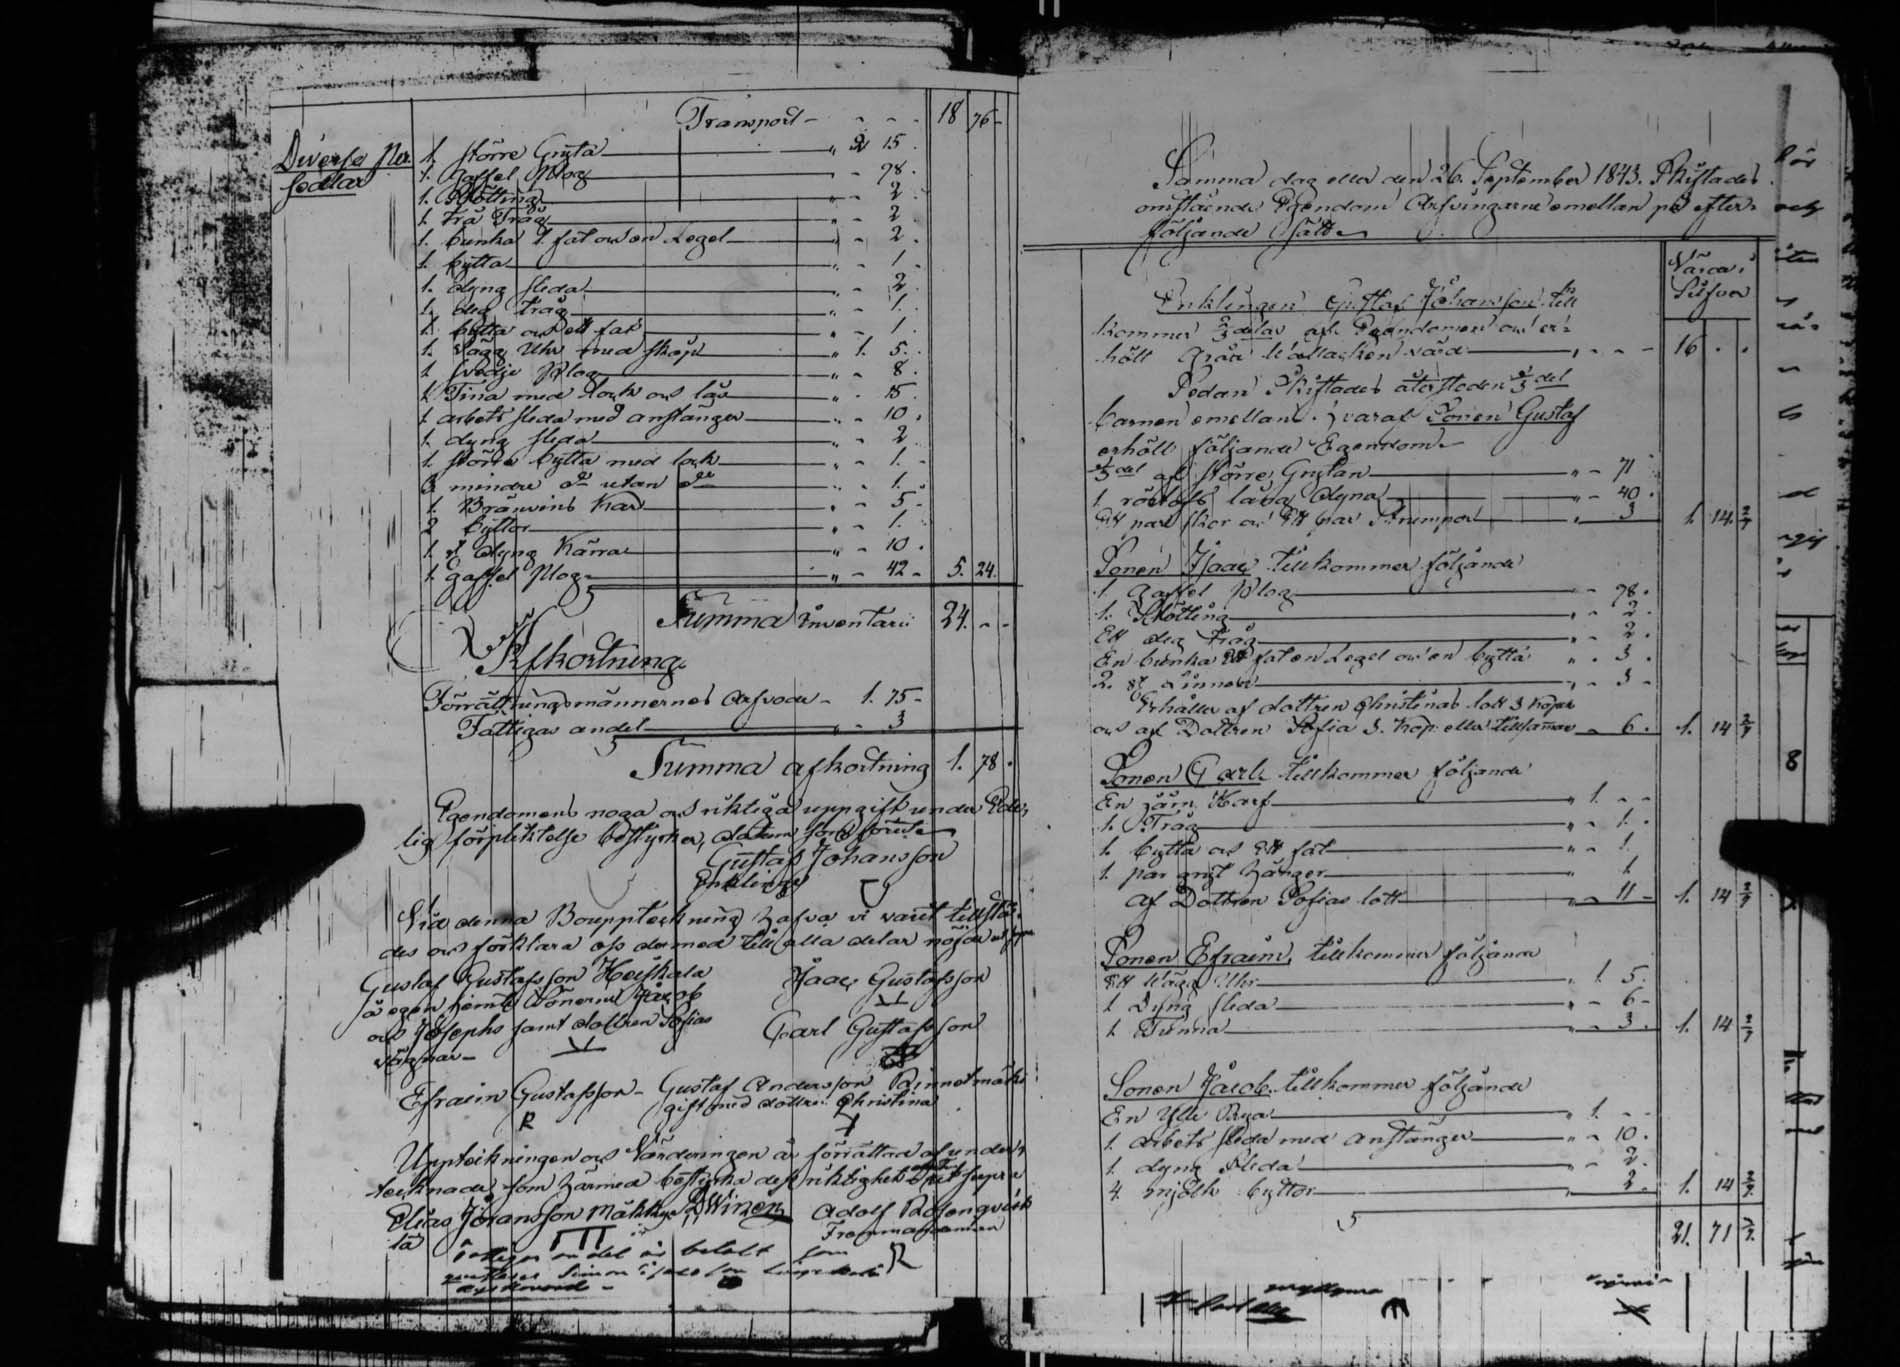 Transport - - - 18 76 -
Diverse Per-
sedlar
1. större Gryta " 2 15.
1. Gaffel Plog " - 78.
1. Skötting " - 2.
1. trä Tråg " - 2
1. bunka 1. fat och en Legel " - 2.
1. bytta " - 1
1. dyng släda " - 2.
1. deg tråg " - 1.
1. bytta och ett fat " - 1.
1. Vägg Uhr med skåp " 1. 5.
1. svedje Plog " - 8.
1. Tina med lock och lås " - 15.
1. arbets släda med anstänger " - 10.
1. dyng släda " - 2
1. större bytta med lock " - 1. -
3 mindre do utan do " - 1.
1. Bränvins Kar " - 5 -
2 byttor " - 1.
1. st dyng Kärra " - 10.
1. gaffel Plog " - 42 - 5. 24.
Summa Inventarii 24. - -
Afkortning
Förrättningsmännernes Arfvode - 1. 75 -
Fattigas andel " - 3
Summa afkortning 1. 78.
Egendomens noga och riktiga uppgift under Ede-
lig förpliktelse bestyrker, datum som förut
Gustaf Johansson
Enkling
Vid denna Bouppteckning hafva vi varit tillstä-
des och förklara oss dermed till alla delar nöjde
Gustaf Gustafsson Heiskala
å egen jemte Sönerne Jacob
och Josephs samt dottren Sofias
vägnar -
Isaac Gustafsson
Carl Gustafsson
Efraim Gustafsson - Gustaf Andersson
gift med dottren Christina
Uppteckningen och Värderingen är förrättad af under-
tecknade, som härmed bestyrka dess riktighet
Elias Johansson Adolf Rosenqvist
är betalt
Samma dag eller den 26. September 1843. Skiftades
omstående Egendom Arfvingarne emellan på efter-
följande sätt
Värde i
Silfver
Enklingen Gustaf Johansson till
kommer 2/3 delar af Egendomen och er-
höll Gråa Vallacken värd " - - - 16 . .
Sedan Skiftades återstoden 1/3 del
barnen emellan. hvaraf Sonen Gustaf
erhöll följande Egendom
1/3 del af större Grytan " - 71
1. dyna " - 40.
Ett par skor och Ett par Strumpor " 3 1. 14. 2/7
Sonen Isaac tillkommer följande
1. Gaffel Plog " - 78.
1. Skötting " - 2.
Ett deg Tråg " - 2.
En bunka Ett fat en Legel och en bytta " . 3.
2. st " - 3 -
Erhåller af dottren Christinas lott 3 Kopek
och af Dottren Sofia 3. Kop: eller tillsammans - 6. 1. 14 2/7
Sonen Carl tillkommer följande
En järn Harf " 1. - -
1. Tråg " - 1.
1. bytta och Ett fat " - 1.
1. par " 1
af Dottren Sofias lott " - 11 - 1. 14 2/7
Sonen Efraim, tillkommer följande
Ett Vägg Uhr " 1. 5.
1 Dyng släda " - 6 -
1. Tunna " - 3. 1. 14 2/7
Sonen Jacob tillkommer följande
En Ylle Rya " 1. - -
1. arbets släda med Anstänger " - 10.
1. dyng Släda " - 2.
4. mjölk byttor 2. 1. 14 2/7
21. 71 3/7